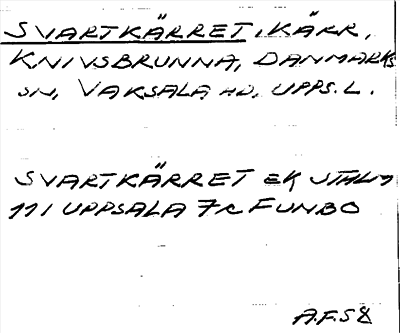 SVARTKÄRRET, KÄRR,
KNIVSBRUNNA, DANMARKS
SN, VAKSALA HD, UPPS. L.
SVARTKÄRRET EK UTALM
111 UPPSALA 7c FUNBO
A.F.S 8